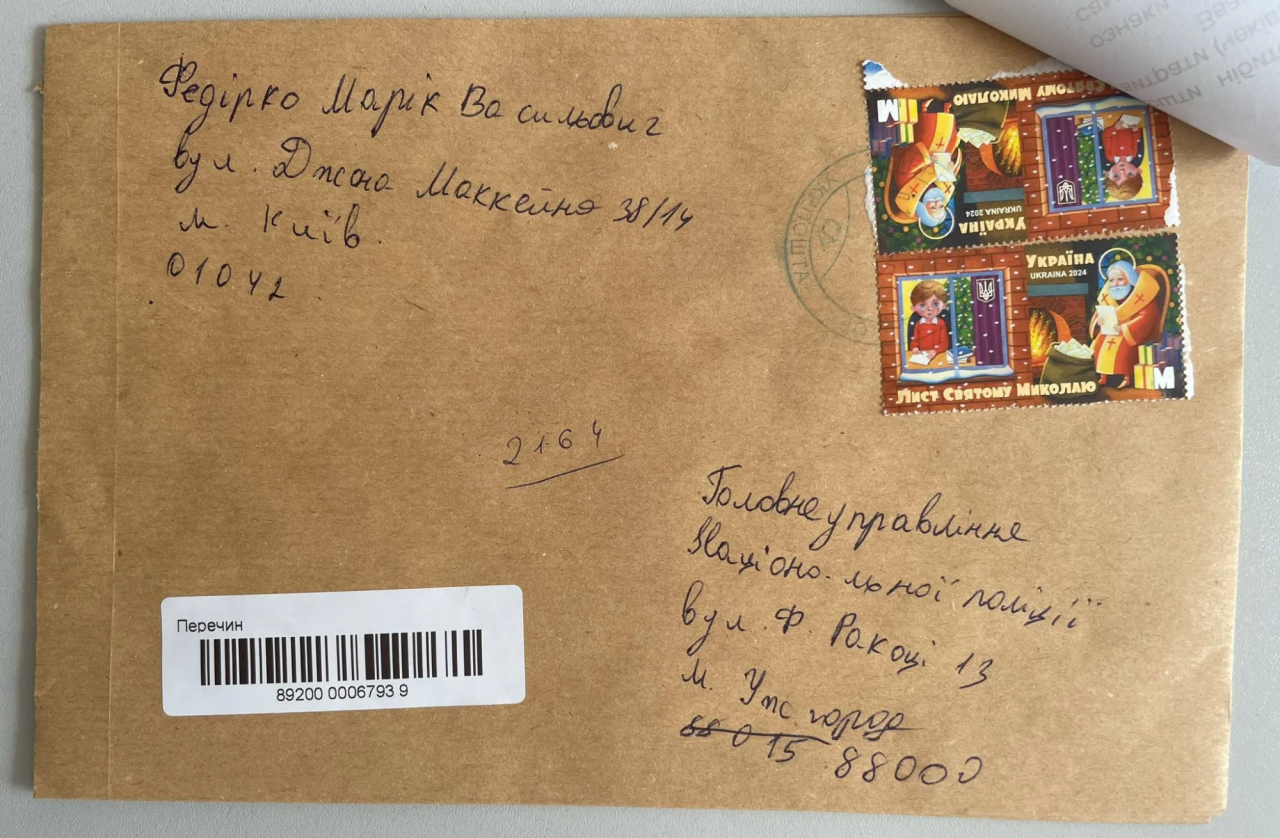 Федірко Марік Васильович
вул. Джона Маккейна 38/14
м. Київ.
01042
УКРПОШТА
Лист Святому Миколаю
М
Україна
UKRAINA 2024
Україна
UKRAINA 2024
Лист Святому Миколаю
М
2164
Головне управління
Національної поліції
вул. Ф. Ракоці 13
м. Ужгород
88015 88000
Перечин
89200 0006793 9